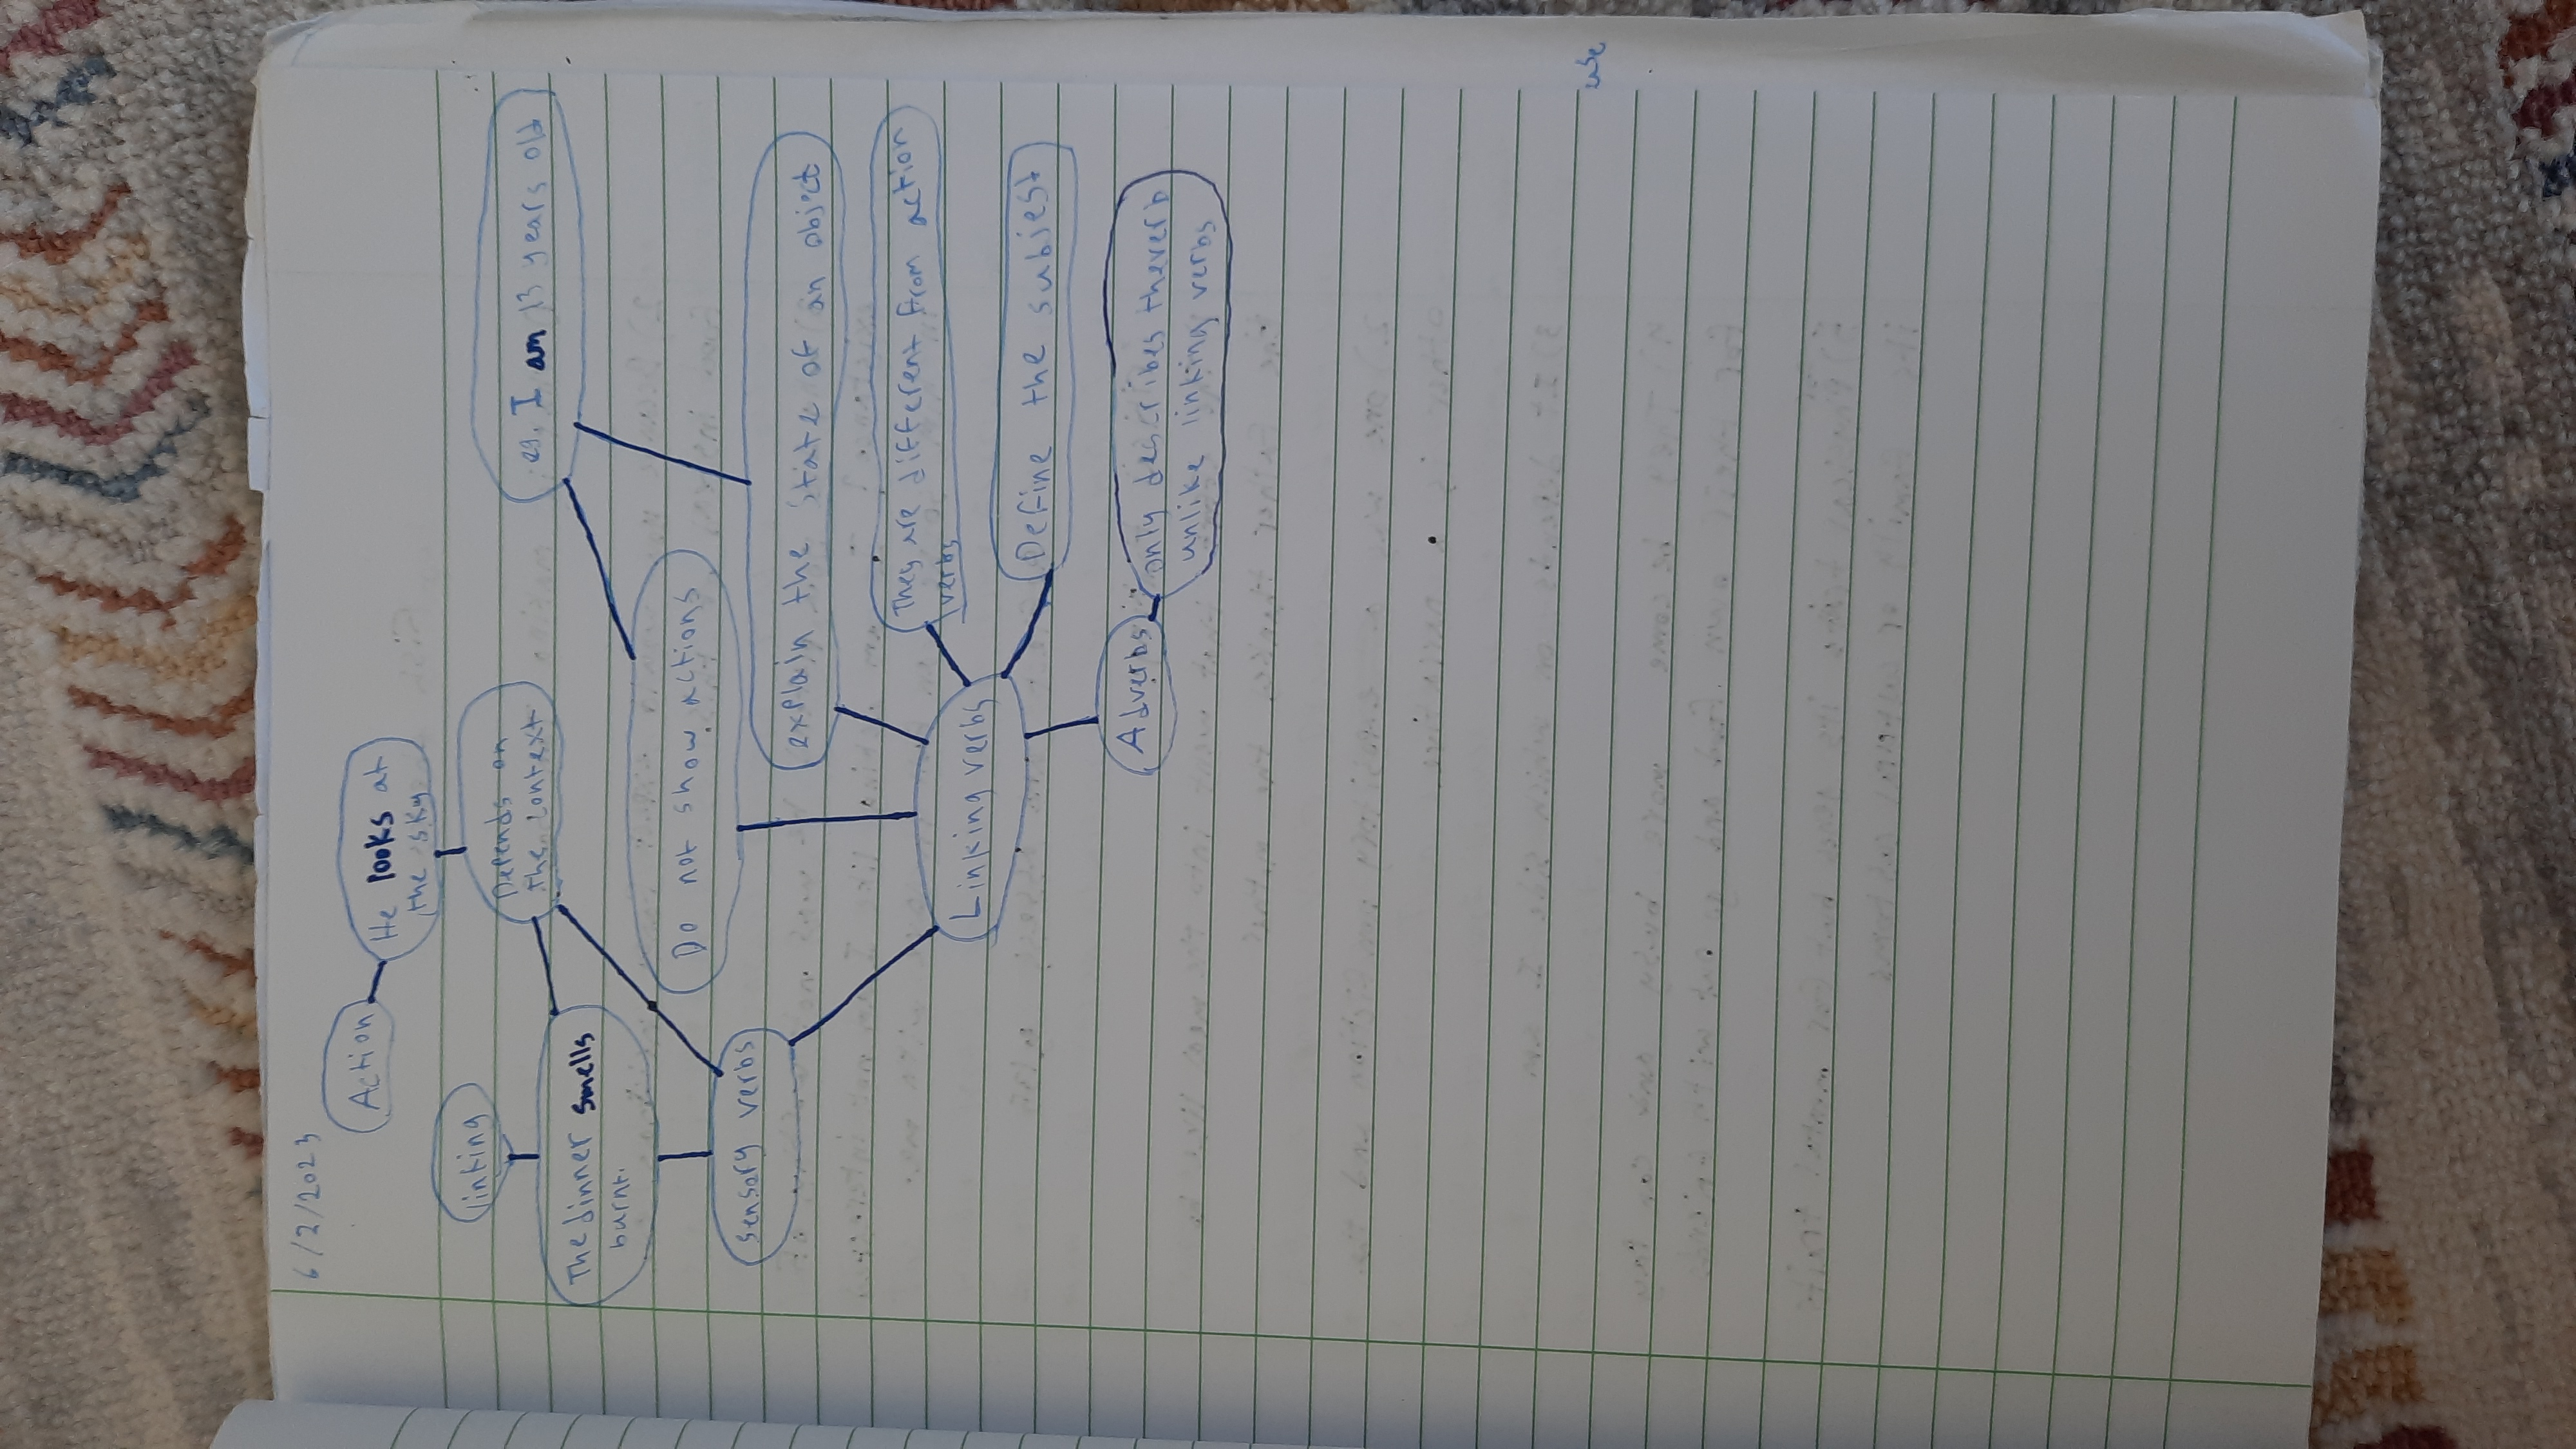 6/2/2023
Action
He looks at
the sky
linking
Depends on
the context
eg. I am 13 years old
The dinner smells
burnt.
Do not show actions
sensory verbs
explain the state of an object
They are different from action
verbs
Linking verbs
Define the subjest
Adverbs
only describes the verb
unlike linking verbs
use